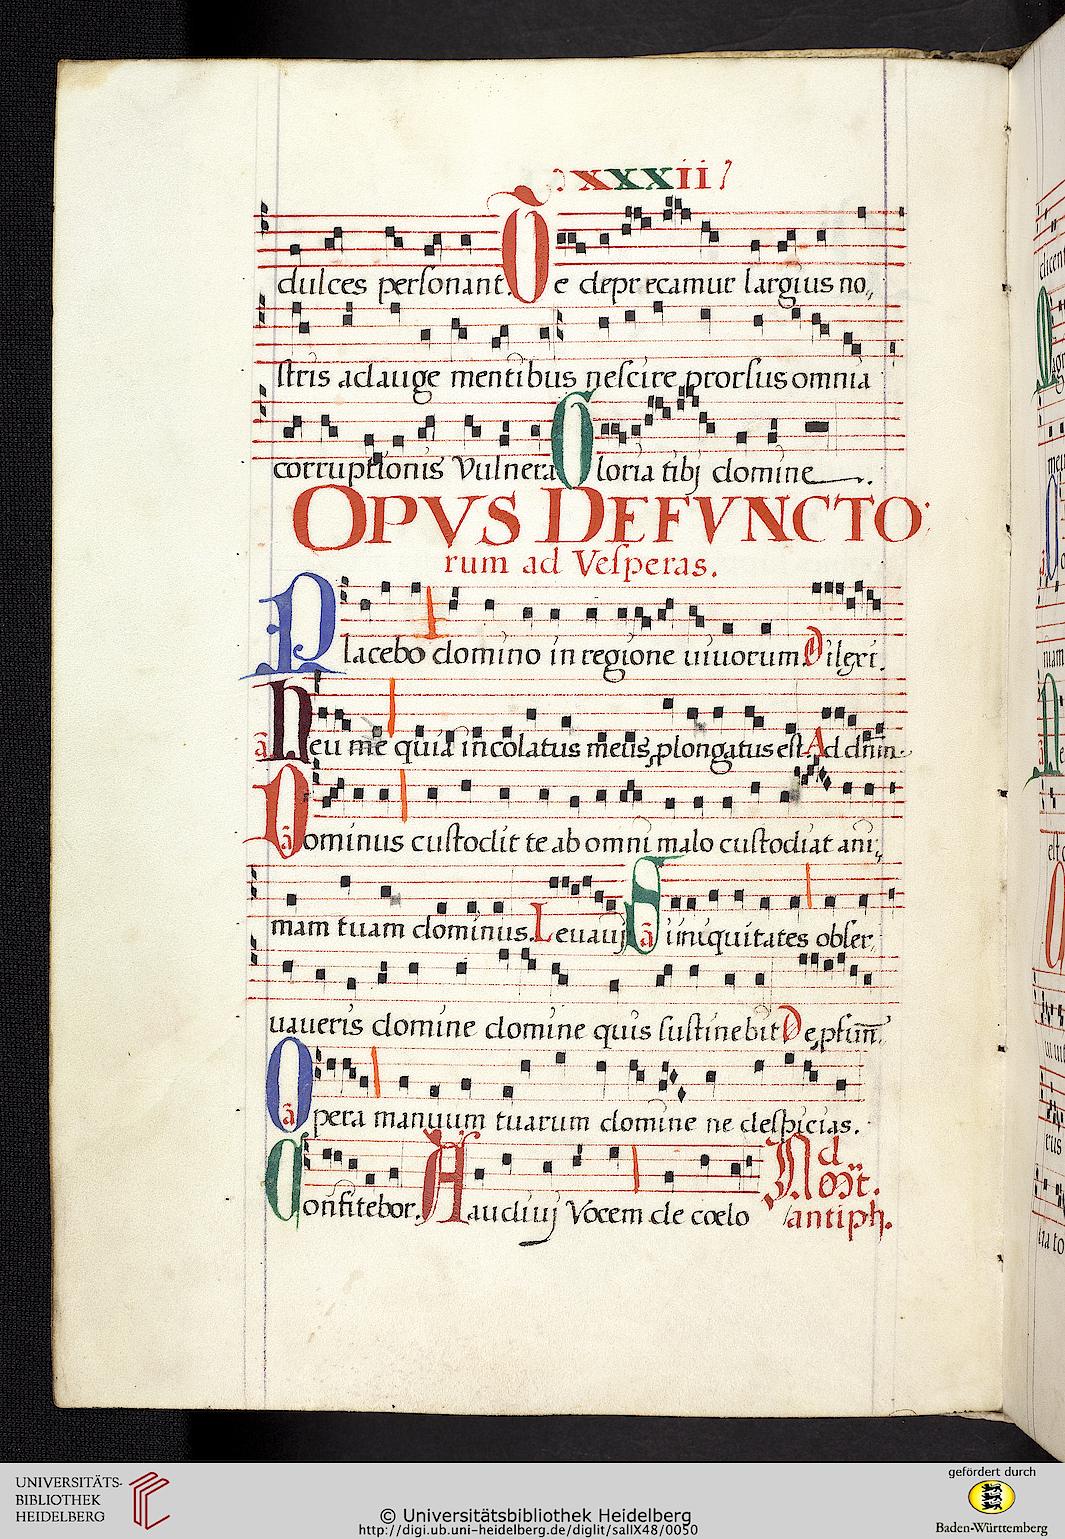 xxxii
dulces personant. Te deprecamur largius no,,
stris adauge mentibus nescire prorsus omnia
corruptionis Vulnera Gloria tibj domine
OPVS DEFVNCTO:
rum ad Vesperas.
Placebo domino in regione uiuorum. Dilexi.
ã Heu me quia incolatus meus plongatus est. Ad dnm.
ã Dominus custodit te ab omni malo custodiat ani,,
mam tuam dominus. Leuauj ã Si iniquitates obser,
uaueris domine domine quis sustinebit De pfun.
ã Opera manuum tuarum domine ne despicias.
Confitebor. Audiuj Vocem de cœlo Ad
antiph.
UNIVERSITÄTS-
BIBLIOTHEK
HEIDELBERG
© Universitätsbibliothek Heidelberg
http://digi.ub.uni-heidelberg.de/diglit/salIX48/0050
gefördert durch
Baden-Württemberg